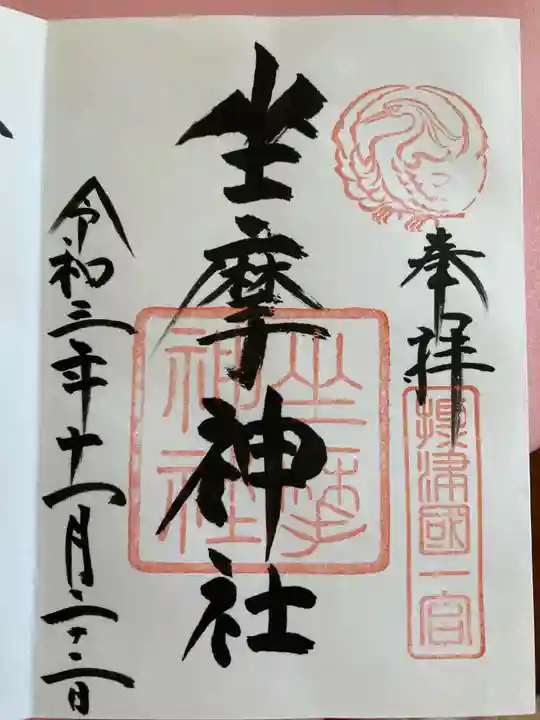 奉拝
攝津國一宮
坐摩神社
坐摩神社
令和三年十一月二十二日